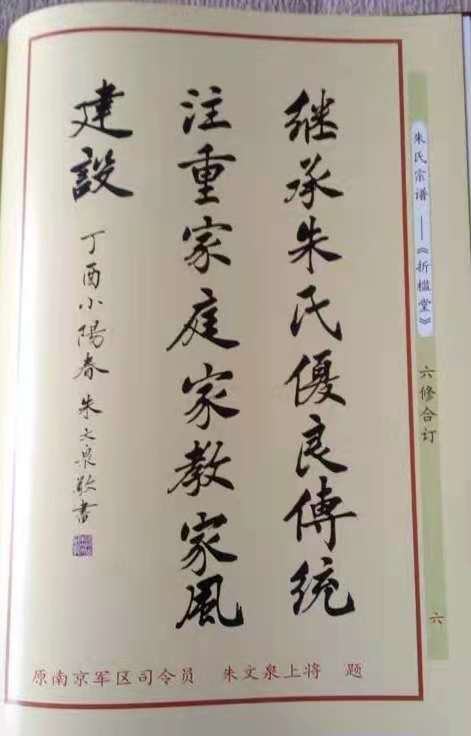 继承朱氏優良傳統
注重家庭家教家風
建設
丁酉小陽春 朱文泉敬書
原南京军区司令员 朱文泉上将 题
朱氏宗谱——《折槛堂》
六修合订
六